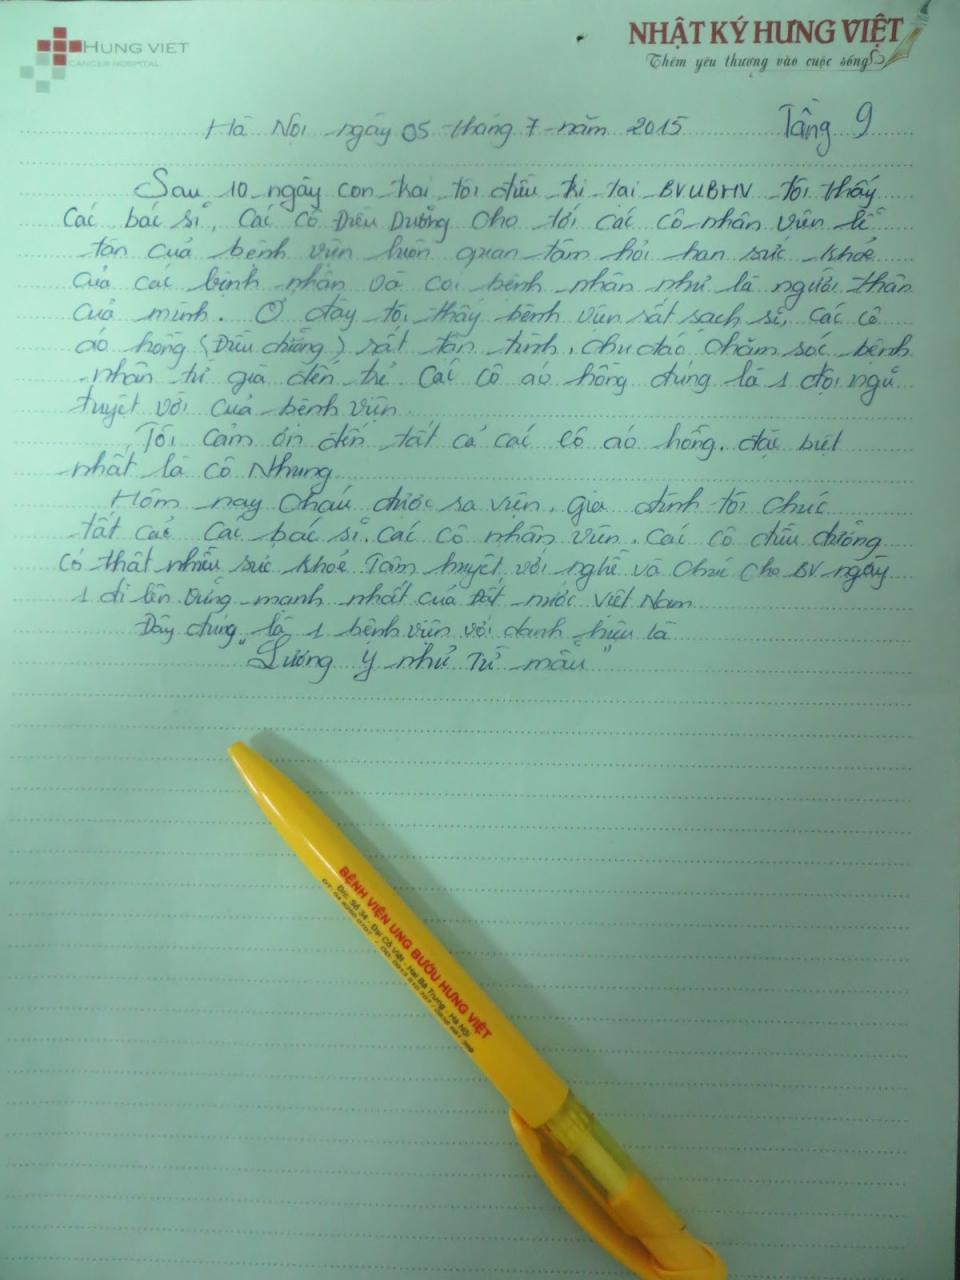 HUNG VIET
CANCER HOSPITAL
NHẬT KÝ HƯNG VIỆT
Thêm yêu thương vào cuộc sống
Hà Nội ngày 05 tháng 7 năm 2015
Tầng 9
Sau 10 ngày con trai tôi điều trị tại BVUBHV tôi thấy
các bác sĩ, các cô Điều Dưỡng cho tới các cô nhân viên lễ
tân của bệnh viện luôn quan tâm hỏi han sức khỏe
của các bệnh nhân và coi bệnh nhân như là người thân
của mình. Ở đây tôi thấy bệnh viện rất sạch sẽ, các cô
áo hồng (Điều dưỡng) rất tận tình, chu đáo chăm sóc bệnh
nhân từ già đến trẻ. Các cô áo hồng đúng là 1 đội ngũ
tuyệt vời của bệnh viện.
Tôi cảm ơn đến tất cả các cô áo hồng, đặc biệt
nhất là cô Nhung
Hôm nay cháu được ra viện, gia đình tôi chúc
tất cả các bác sĩ, các cô nhân viên, các cô điều dưỡng
có thật nhiều sức khỏe Tâm huyết với nghề và chúc cho BV ngày
1 đi lên vững mạnh nhất của Đất nước Việt Nam
Đây đúng là 1 bệnh viện với danh hiệu là
"Lương y như Từ mẫu"
BỆNH VIỆN UNG BƯỚU HƯNG VIỆT
Đ/c: Số 34 - Đại Cồ Việt - Hai Bà Trưng - Hà Nội